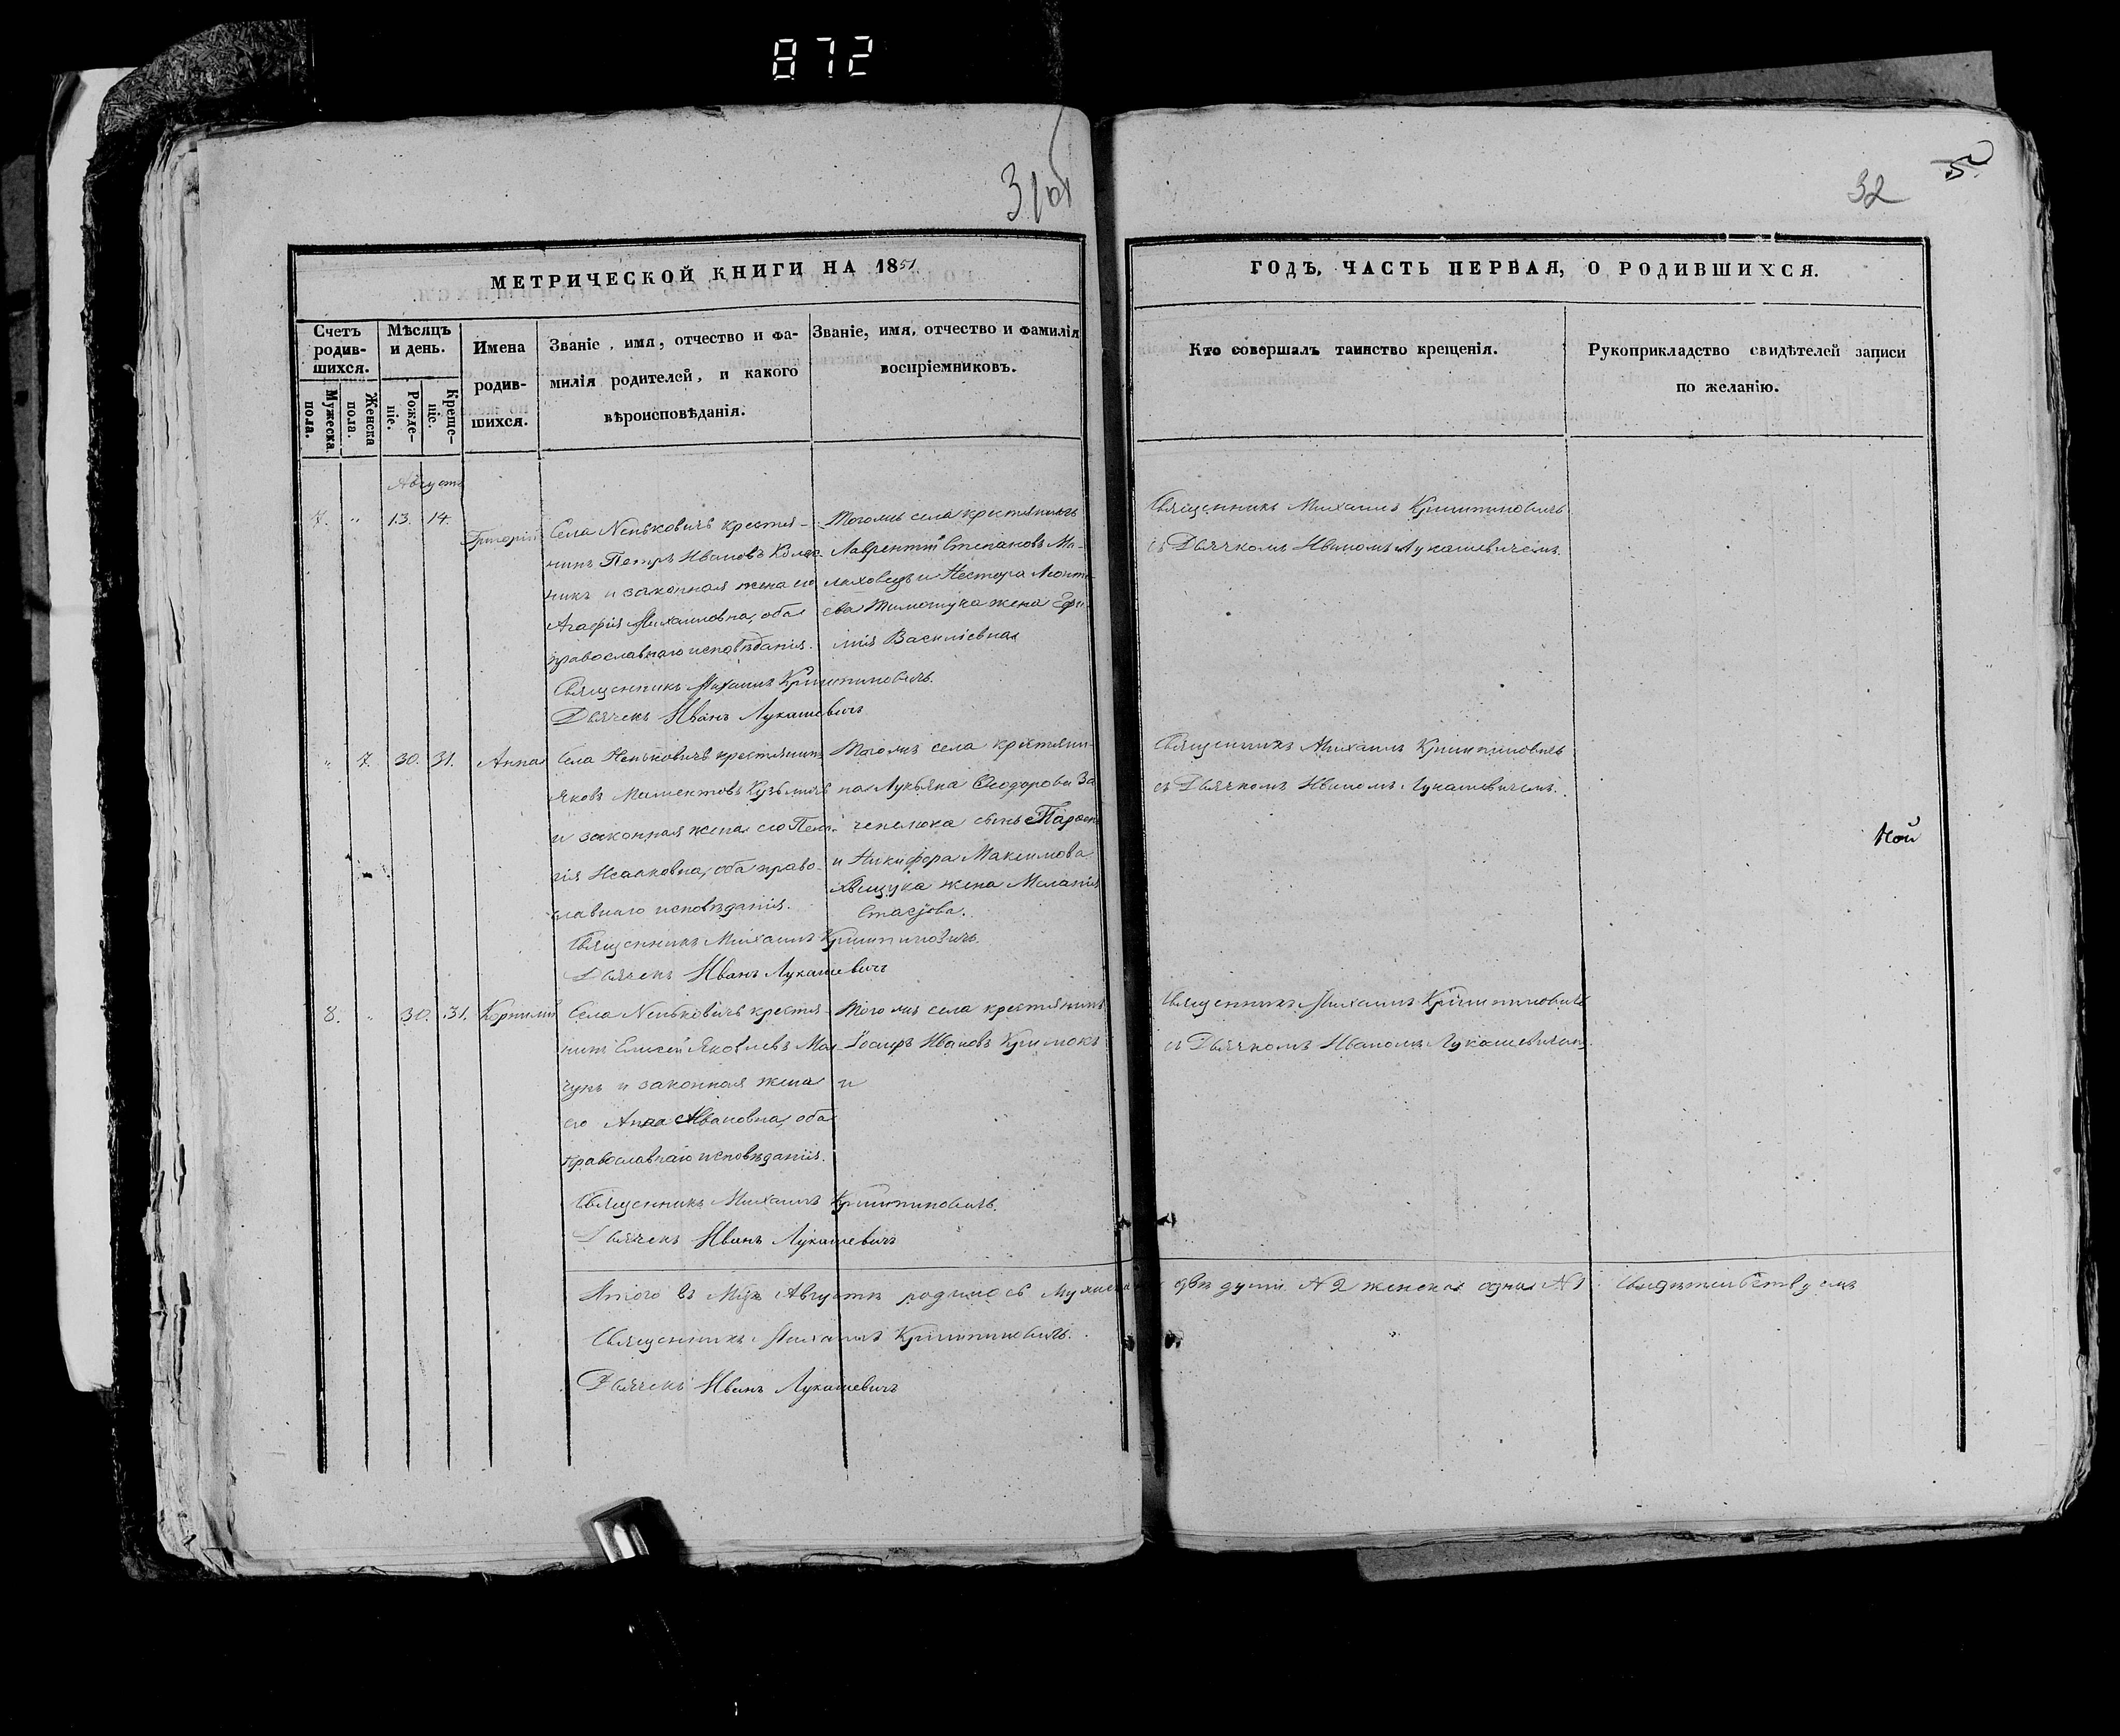 872
31об
32
5
МЕТРИЧЕСКОЙ КНИГИ НА 1851
ГОДЪ, ЧАСТЬ ПЕРВАЯ, О РОДИВШИХСЯ.
Счетъ родив-шихся.
Мужеска пола.
Женска пола.
Мѣсяцъ и день.
Рожде-ніе.
Креще-ніе.
Имена родив-шихся.
Званіе, имя, отчество и фа-
милія родителей, и какого
вѣроисповѣданія.
Званіе, имя, отчество и фамилія
воспріемниковъ.
Кто совершалъ таинство крещенія.
Рукоприкладство свидѣтелей записи
по желанію.
Августъ
7. " 13. 14. Григорій
Села Неньковичъ крестья-
нинъ Петръ Ивановъ
и законная жена его
Агафія Михаиловна, оба
православнаго исповѣданія.
Священникъ Михаилъ
Дьячекъ Иванъ Лукашевичъ
Того жъ села крестьянинъ
Лаврентій Степановъ Ма-
ховецъ и Нестора Леонть-
ева Тимощука жена Ефи-
мія Василіевна
Священникъ Михаилъ
съ Дьячкомъ Иваномъ Лукашевичемъ.
" 7. 30. 31. Анна
Села Неньковичъ крестьянинъ
Яковъ Мамонтовъ Кузьмичъ
и законная жена его Пела-
гія Исааковна, оба право-
славнаго исповѣданія.
Священникъ Михаилъ
Дьячекъ Иванъ Лукашевичъ
Того жъ села крестьяни-
на Лукьяна Ѳеодорова За-
чепелюка сынъ
и Никифора Максимова
жена Меланія
Священникъ Михаилъ
съ Дьячкомъ Иваномъ Лукашевичемъ.
ной
8. " 30. 31. Корнилій
Села Неньковичъ крестья-
нинъ Елисей Яковлевъ Ма-
чунъ и законная жена
его Анна Ивановна, оба
православнаго исповѣданія.
Священникъ Михаилъ
Дьячекъ Иванъ Лукашевичъ
Того жъ села крестьянинъ
Іосифъ Ивановъ
и
Священникъ Михаилъ
съ Дьячкомъ Иваномъ Лукашевичемъ
Итого въ Мцѣ Августѣ родилось мужеска двѣ души N 2 женска одна N 1. Свидѣтельствуемъ
Священникъ Михаилъ
Дьячекъ Иванъ Лукашевичъ